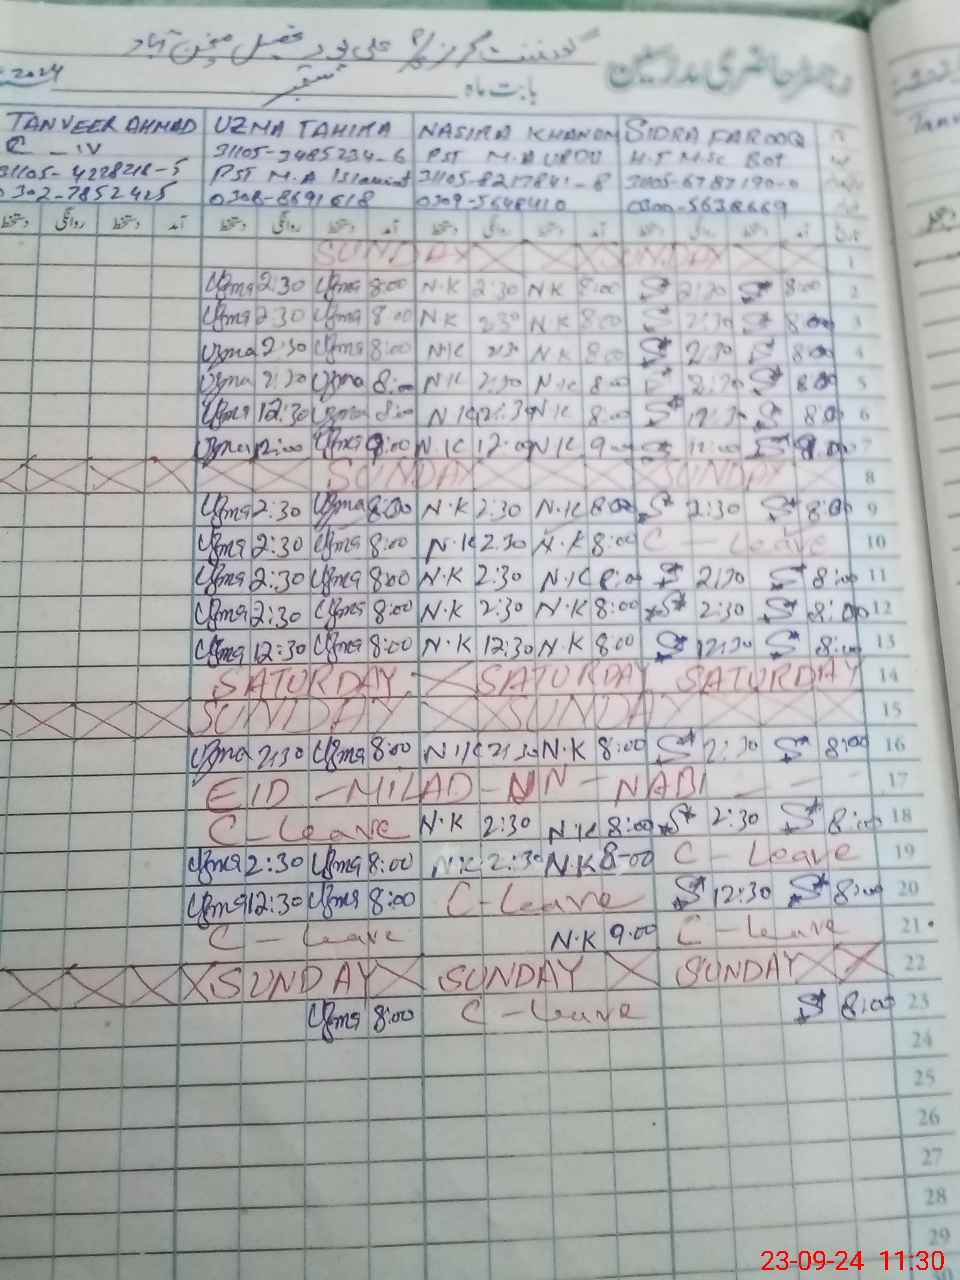 رجسٹر حاضری مدرسین
بابت ماہ ستمبر 2024
TANVEER AHMAD UZMA TAHIRA NASIRA KHANOM SIDRA FAROOQ
C - IV 31105-3485234-6 PST M.A URDU H.T M.Sc Bot
31105-4228218-5 PST M.A Islamiat 31105-8217841-8
0302-7852425 0308-8691618 0309-5648410 0300-5638669
دستخط روانگی دستخط آمد دستخط روانگی دستخط آمد دستخط روانگی دستخط آمد دستخط روانگی دستخط آمد تاریخ
SUNDAY SUNDAY 1
Uzma 2:30 Uzma 8:00 N.K 2:30 N.K 8:00 2:30 8:00 2
Uzma 2:30 Uzma 8:00 N.K 2:30 N.K 8:00 2:30 8:00 3
Uzma 2:30 Uzma 8:00 N.K 2:30 N.K 8:00 2:30 8:00 4
Uzma 2:30 Uzma 8:00 N.K 2:30 N.K 8:00 2:30 8:00 5
Uzma 12:30 Uzma 8:00 N.K 12:30 N.K 8:00 12:30 8:00 6
Uzma 12:00 Uzma 9:00 N.K 12:00 N.K 9:00 12:00 9:00 7
SUNDAY SUNDAY 8
Uzma 2:30 Uzma 8:00 N.K 2:30 N.K 8:00 2:30 8:00 9
Uzma 2:30 Uzma 8:00 N.K 2:30 N.K 8:00 C - Leave 10
Uzma 2:30 Uzma 8:00 N.K 2:30 N.K 8:00 2:30 8:00 11
Uzma 2:30 Uzma 8:00 N.K 2:30 N.K 8:00 2:30 8:00 12
Uzma 12:30 Uzma 8:00 N.K 12:30 N.K 8:00 12:30 8:00 13
SATURDAY SATURDAY SATURDAY 14
SUNDAY SUNDAY 15
Uzma 2:30 Uzma 8:00 N.K 2:30 N.K 8:00 2:30 8:00 16
EID - MILAD - UN - NABI 17
C - Leave N.K 2:30 N.K 8:00 2:30 8:00 18
Uzma 2:30 Uzma 8:00 N.K 2:30 N.K 8:00 C - Leave 19
Uzma 12:30 Uzma 8:00 C - Leave 12:30 8:00 20
C - Leave N.K 9:00 C - Leave 21
SUNDAY SUNDAY SUNDAY 22
Uzma 8:00 C - Leave 8:00 23
24
25
26
27
28
29
23-09-24 11:30